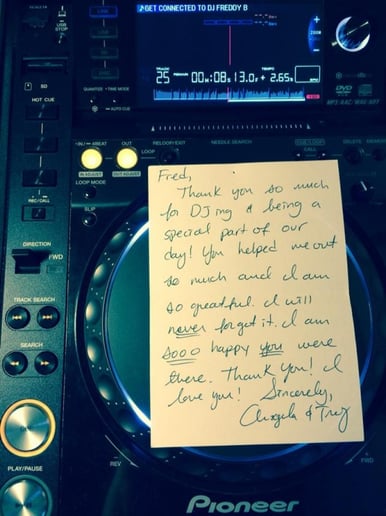 ♪GET CONNECTED TO DJ FREDDY B
USB
STOP
TRACK
25
REMAIN
00M:08S13.0F
TEMPO
+ 2.65%
ZOOM
QUANTIZE
TIME MODE
AUTO CUE
SD
HOT CUE
IN / 4BEAT
OUT
RELOOP/EXIT
LOOP
NEEDLE SEARCH
CALL
DELETE
MEMORY
IN ADJUST
OUT ADJUST
LOOP MODE
REC/CALL
SLIP
DIRECTION
FWD
REV
TRACK SEARCH
SEARCH
PLAY/PAUSE
Fred,
Thank you so much
for DJing & being a
special part of our
day! You helped me out
so much and I am
so greatful. I will
never forget it. I am
sooo happy you were
there. Thank you! I
love you! Sincerely,
Angela & Trey
REV
FWD
Pioneer